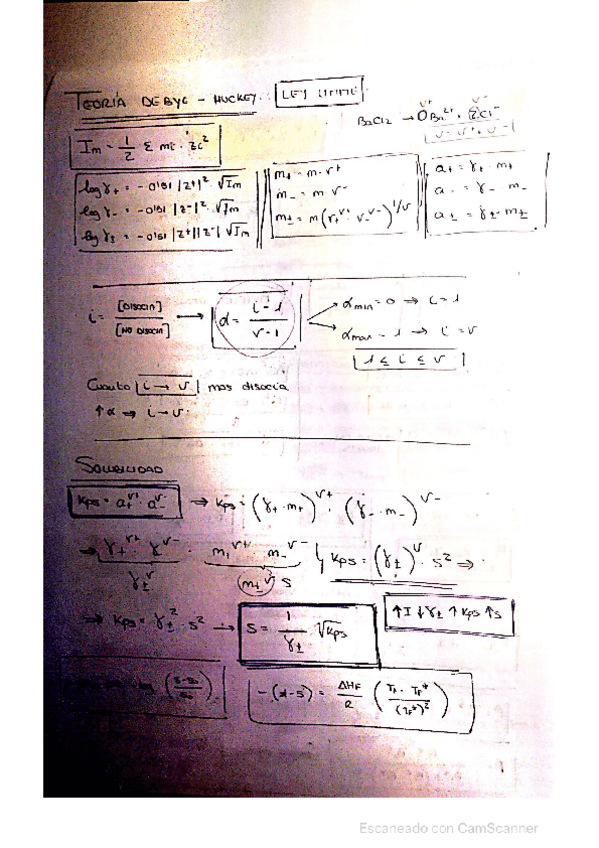 TEORÍA DEBYE - HUCKEY. LEY LIMITE
BaCl2 → Ba²⁺ + 2Cl⁻
ν = ν⁺ + ν⁻
Im = 1/2 Σ mi · zi²
log γ+ = -0'51 |z+|² · √Im
log γ- = -0'51 |z-|² · √Im
log γ± = -0'51 |z+||z-| √Im
m+ = m · ν+
m- = m ν-
m± = m (ν+^ν+ ν-^ν-)^1/ν
a+ = γ+ · m+
a- = γ- m-
a± = γ± · m±
i = [DISOCIA] / [NO DISOCIA] → α = (i - 1) / (ν - 1)
αmin = 0 ⇒ i = 1
αmax = 1 ⇒ i = ν
1 ≤ i ≤ ν
Cuanto i → ν mas disocia
↑α ⇒ i → ν
SOLUBILIDAD
Kps = a+^ν+ · a-^ν- ⇒ Kps = (γ+ · m+)^ν+ · (γ- · m-)^ν-
⇒ γ+^ν+ · γ-^ν- · m+^ν+ · m-^ν-
γ±^ν
m±^ν S
Kps = (γ±)^ν · S² ⇒
⇒ Kps = γ±² · S² → S = 1/γ± √Kps
↑I ↓γ± ↑Kps ↑S
= ΔHF / R